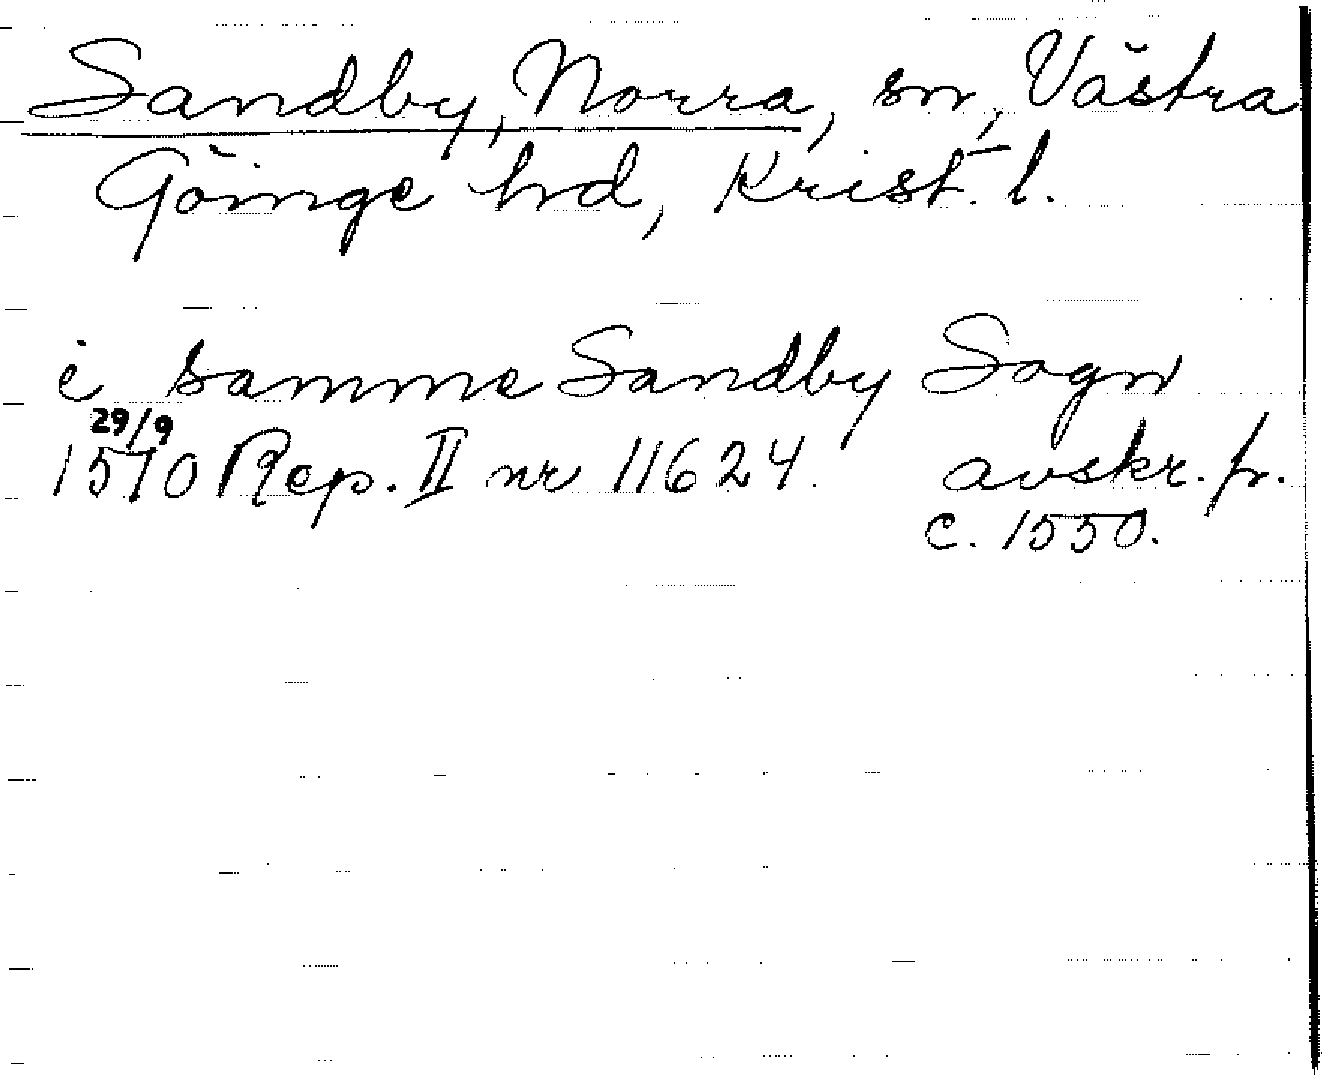 Sandby, Norra, sn, Västra
Göinge hd, Krist. l.
i samme Sandby Sogn
29/9
1510 Rep. II nr 11624. avskr. fr.
c. 1550.